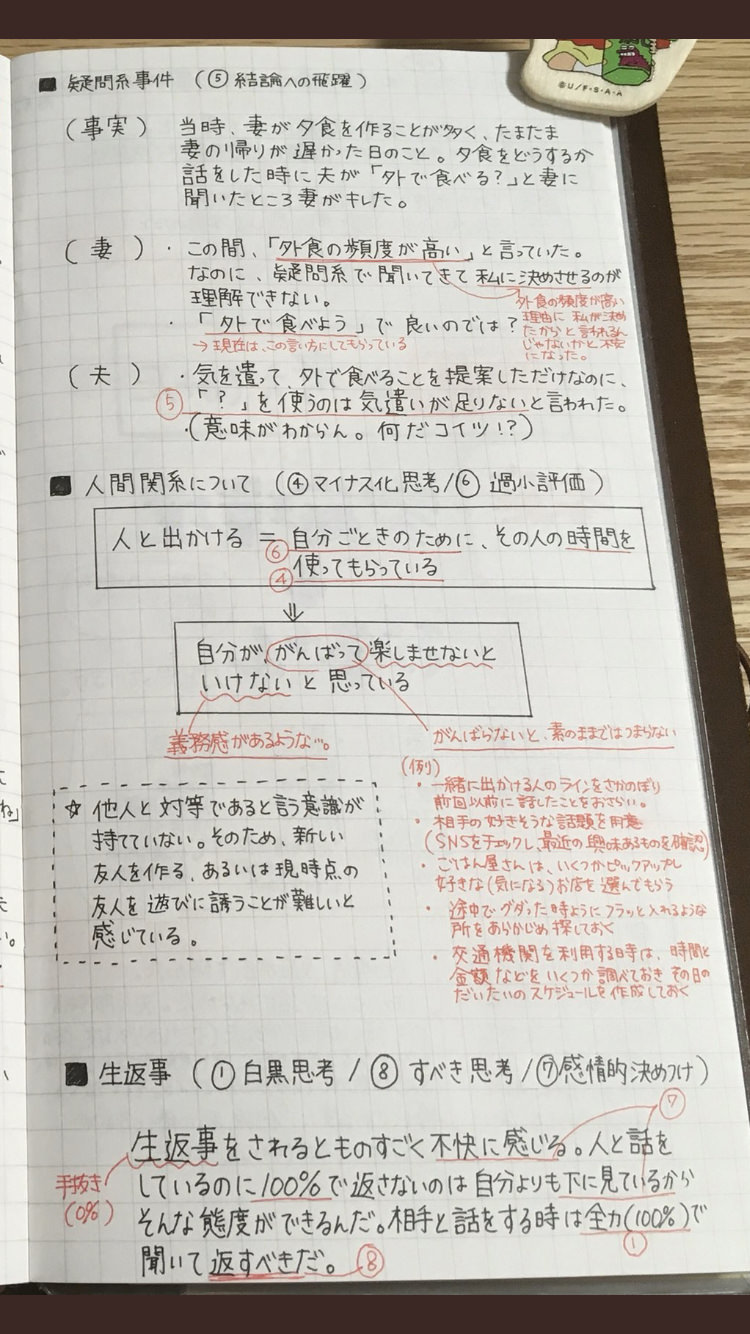 ©U/F・S・A・A
■ 疑問系事件 (⑤ 結論への飛躍)
(事実) 当時、妻が夕食を作ることが多く、たまたま
妻の帰りが遅かった日のこと。夕食をどうするか
話をした時に夫が「外で食べる?」と妻に
聞いたところ妻がキレた。
(妻)・この間、「外食の頻度が高い」と言っていた。
なのに、疑問系で聞いてきて私に決めさせるのが
理解できない。
外食の頻度が高い
理由に私が決め
たからと言われるん
じゃないかと不安
になった。
・「外で食べよう」で良いのでは?
→現在は、この言い方にしてもらっている
(夫)・気を遣って、外で食べることを提案しただけなのに、
⑤「?」を使うのは気遣いが足りないと言われた。
・(意味がわからん。何だコイツ!?)
■ 人間関係について (④マイナス化思考/⑥ 過小評価)
人と出かける = 自分ごときのために、その人の時間を
⑥
④ 使ってもらっている
⇓
自分が、がんばって楽しませないと
いけないと思っている
義務感があるような…。
がんばらないと、素のままではつまらない
(例)
・一緒に出かける人のラインをさかのぼり
前回以前に話したことをおさらい。
・相手の好きそうな話題を用意
(SNSをチェックし、最近の興味あるものを確認)
・ごはん屋さんは、いくつかピックアップし
好きな(気になる)お店を選んでもらう
・途中でグダった時ようにフラッと入れるような
所をあらかじめ探しておく
・交通機関を利用する時は、時間と
金額などをいくつか調べておき その日の
だいたいのスケジュールを作成しておく
☆ 他人と対等であると言う意識が
持てていない。そのため、新しい
友人を作る、あるいは現時点の
友人を遊びに誘うことが難しいと
感じている。
■ 生返事 (① 白黒思考 / ⑧ すべき思考 /⑦感情的決めつけ)
⑦
生返事をされるとものすごく不快に感じる。人と話を
手抜き
(0%)
しているのに100%で返さないのは自分よりも下に見ているから
そんな態度ができるんだ。相手と話をする時は全力(100%)で
①
聞いて返すべきだ。⑧